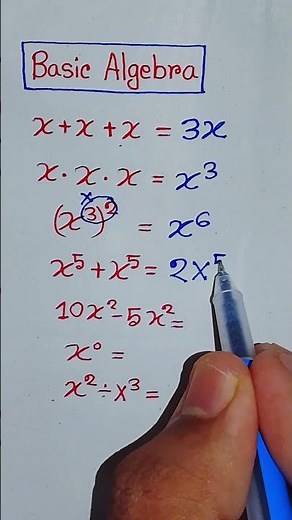 Basic Algebra
x+x+x = 3x
x·x·x = x³
(x³)² = x⁶
x⁵+x⁵= 2x⁵
10x²-5x²=
x⁰ =
x²÷x³=